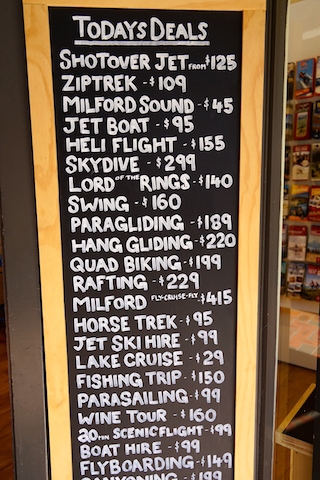 TODAYS DEALS
SHOTOVER JET FROM $125
ZIPTREK - $109
MILFORD SOUND - $45
JET BOAT - $95
HELI FLIGHT - $155
SKYDIVE - $299
LORD OF THE RINGS - $140
SWING - $160
PARAGLIDING - $189
HANG GLIDING - $220
QUAD BIKING - $199
RAFTING - $229
MILFORD FLY-CRUISE-FLY $415
HORSE TREK - $95
JET SKI HIRE - $99
LAKE CRUISE - $29
FISHING TRIP - $150
PARASAILING - $99
WINE TOUR - $160
20 MIN SCENIC FLIGHT - $99
BOAT HIRE - $99
FLYBOARDING - $149
CANYONING - $199